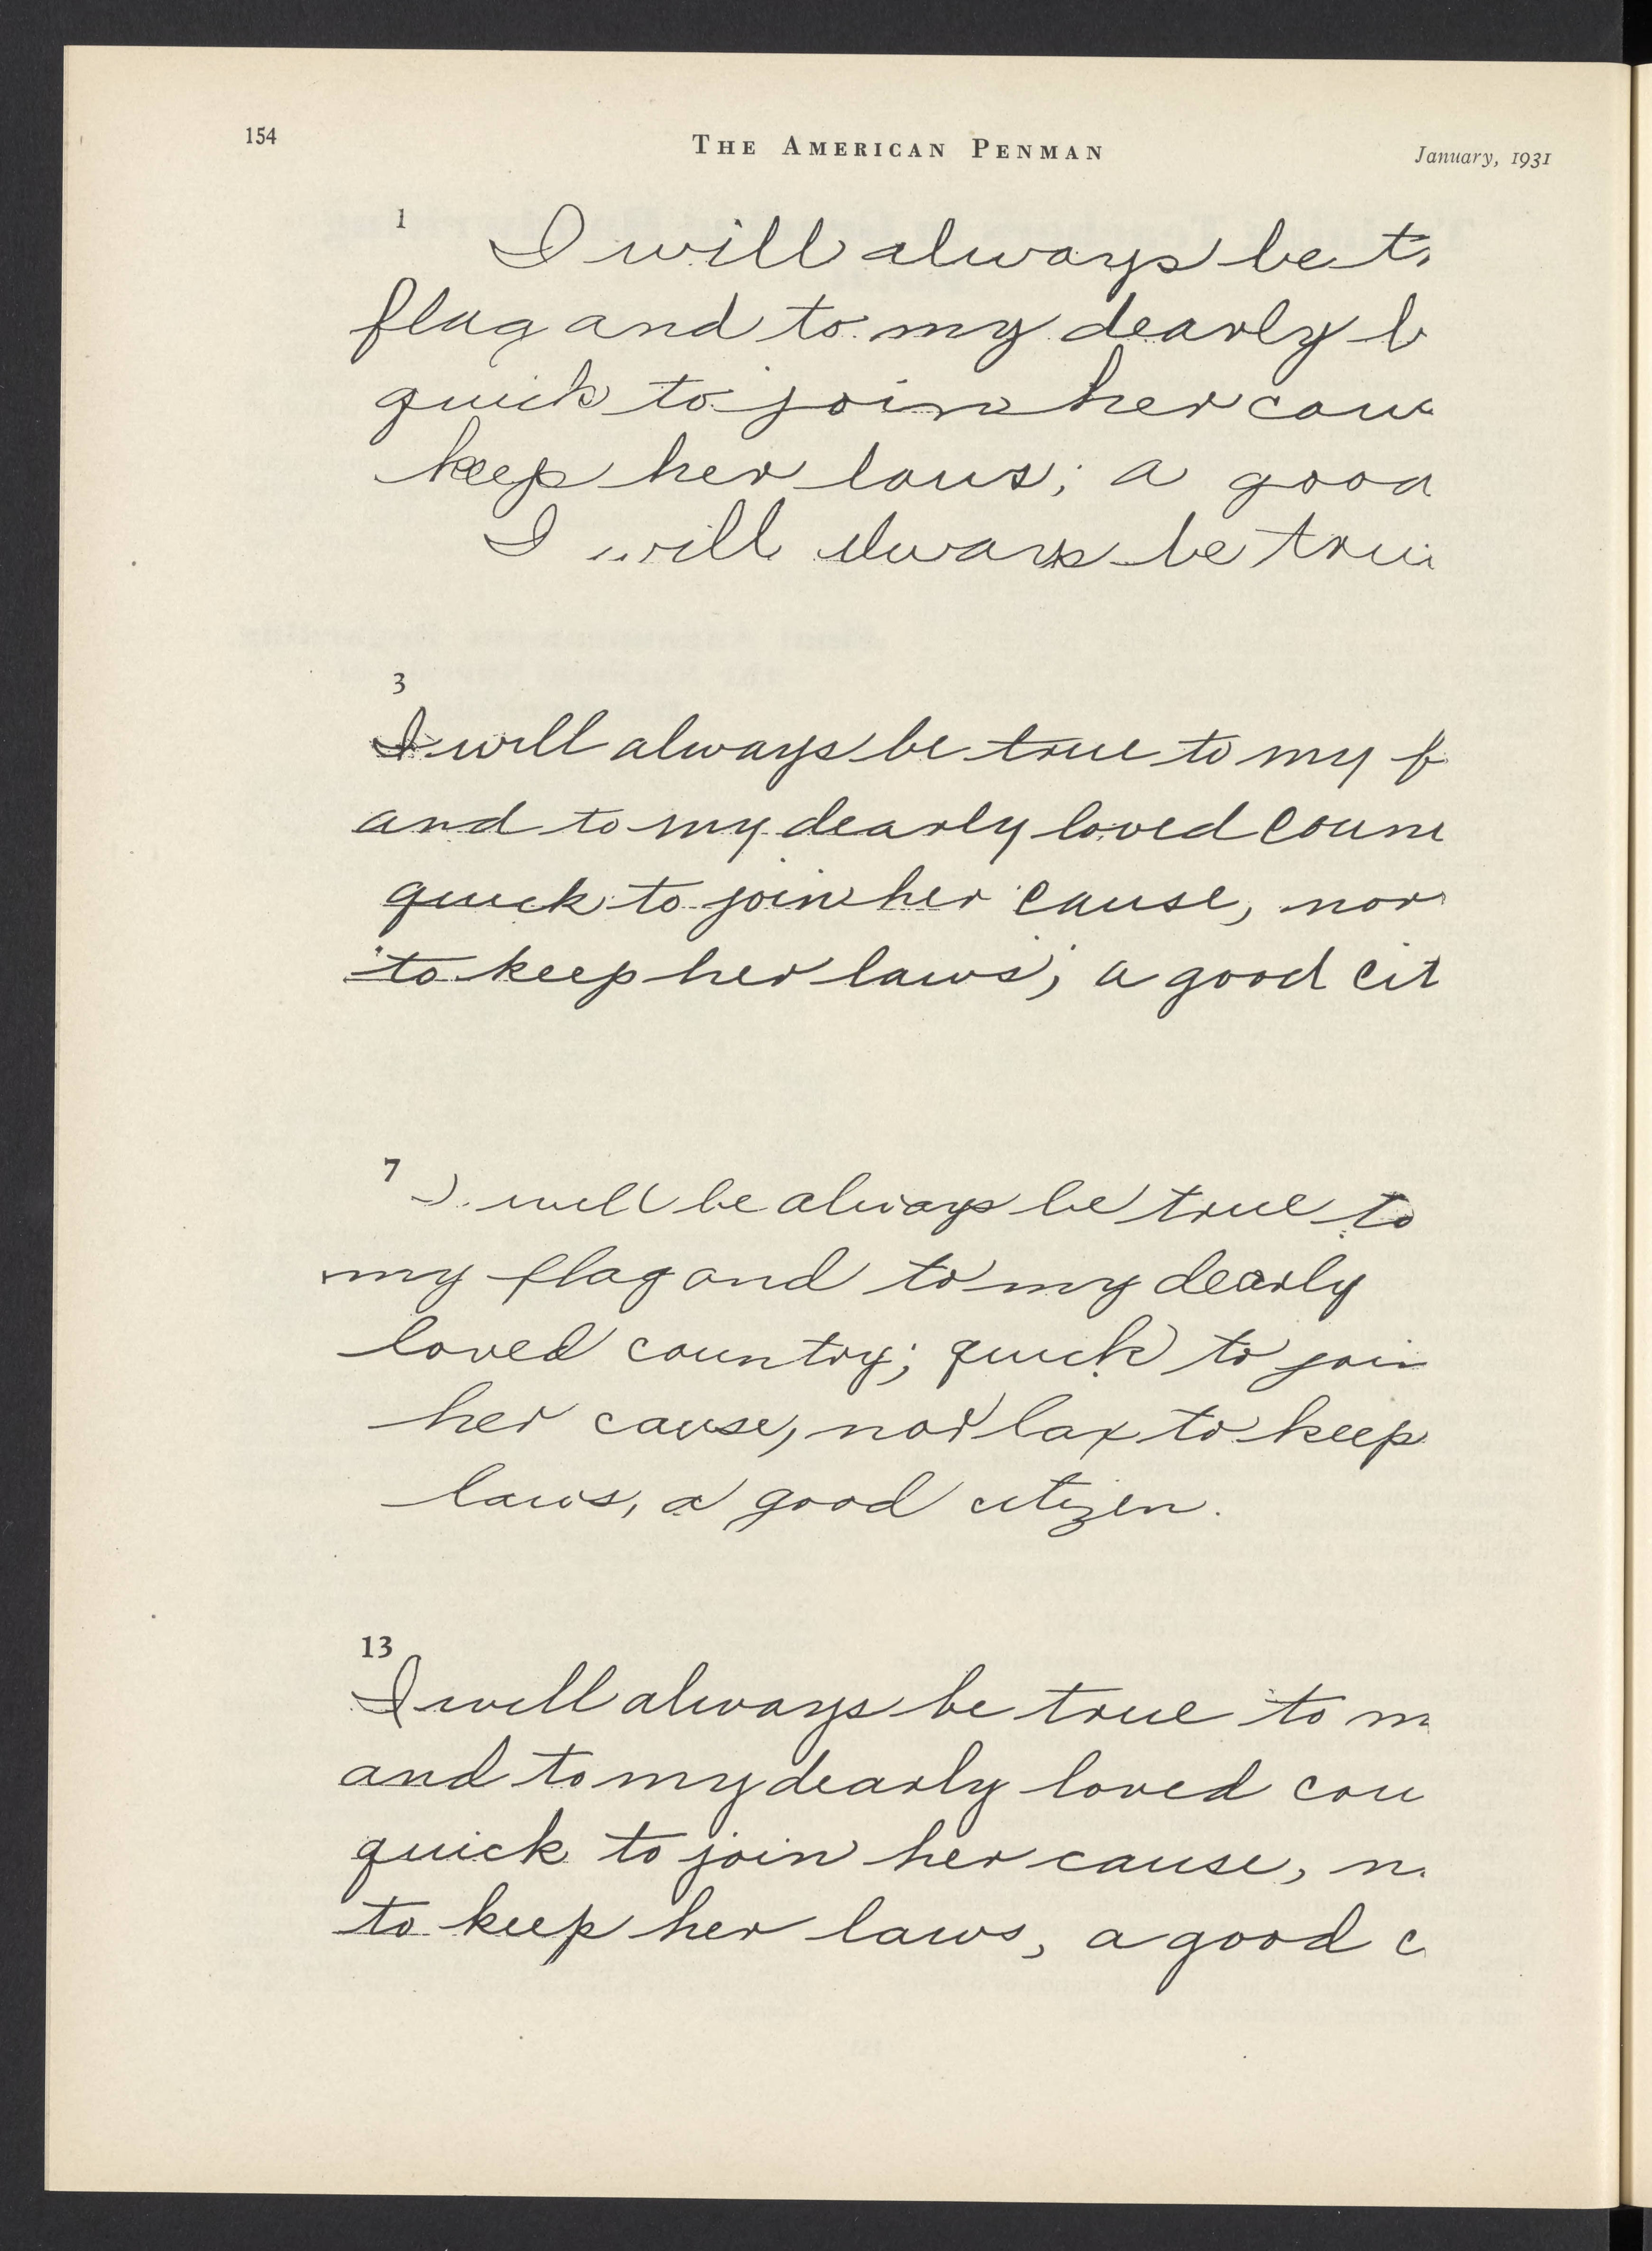 154
THE AMERICAN PENMAN
January, 1931
1
I will always be
flag and to my dearly
quick to join her
keep her laws; a good
I will always be true
3
I will always be true to my f
and to my dearly loved coun
quick to join her cause, nor
to keep her laws; a good cit
7
I will be always be true to
my flag and to my dearly
loved country; quick to join
her cause, nor lax to keep
laws, a good citizen.
13
I will always be true to m
and to my dearly loved cou
quick to join her cause, n
to keep her laws, a good c